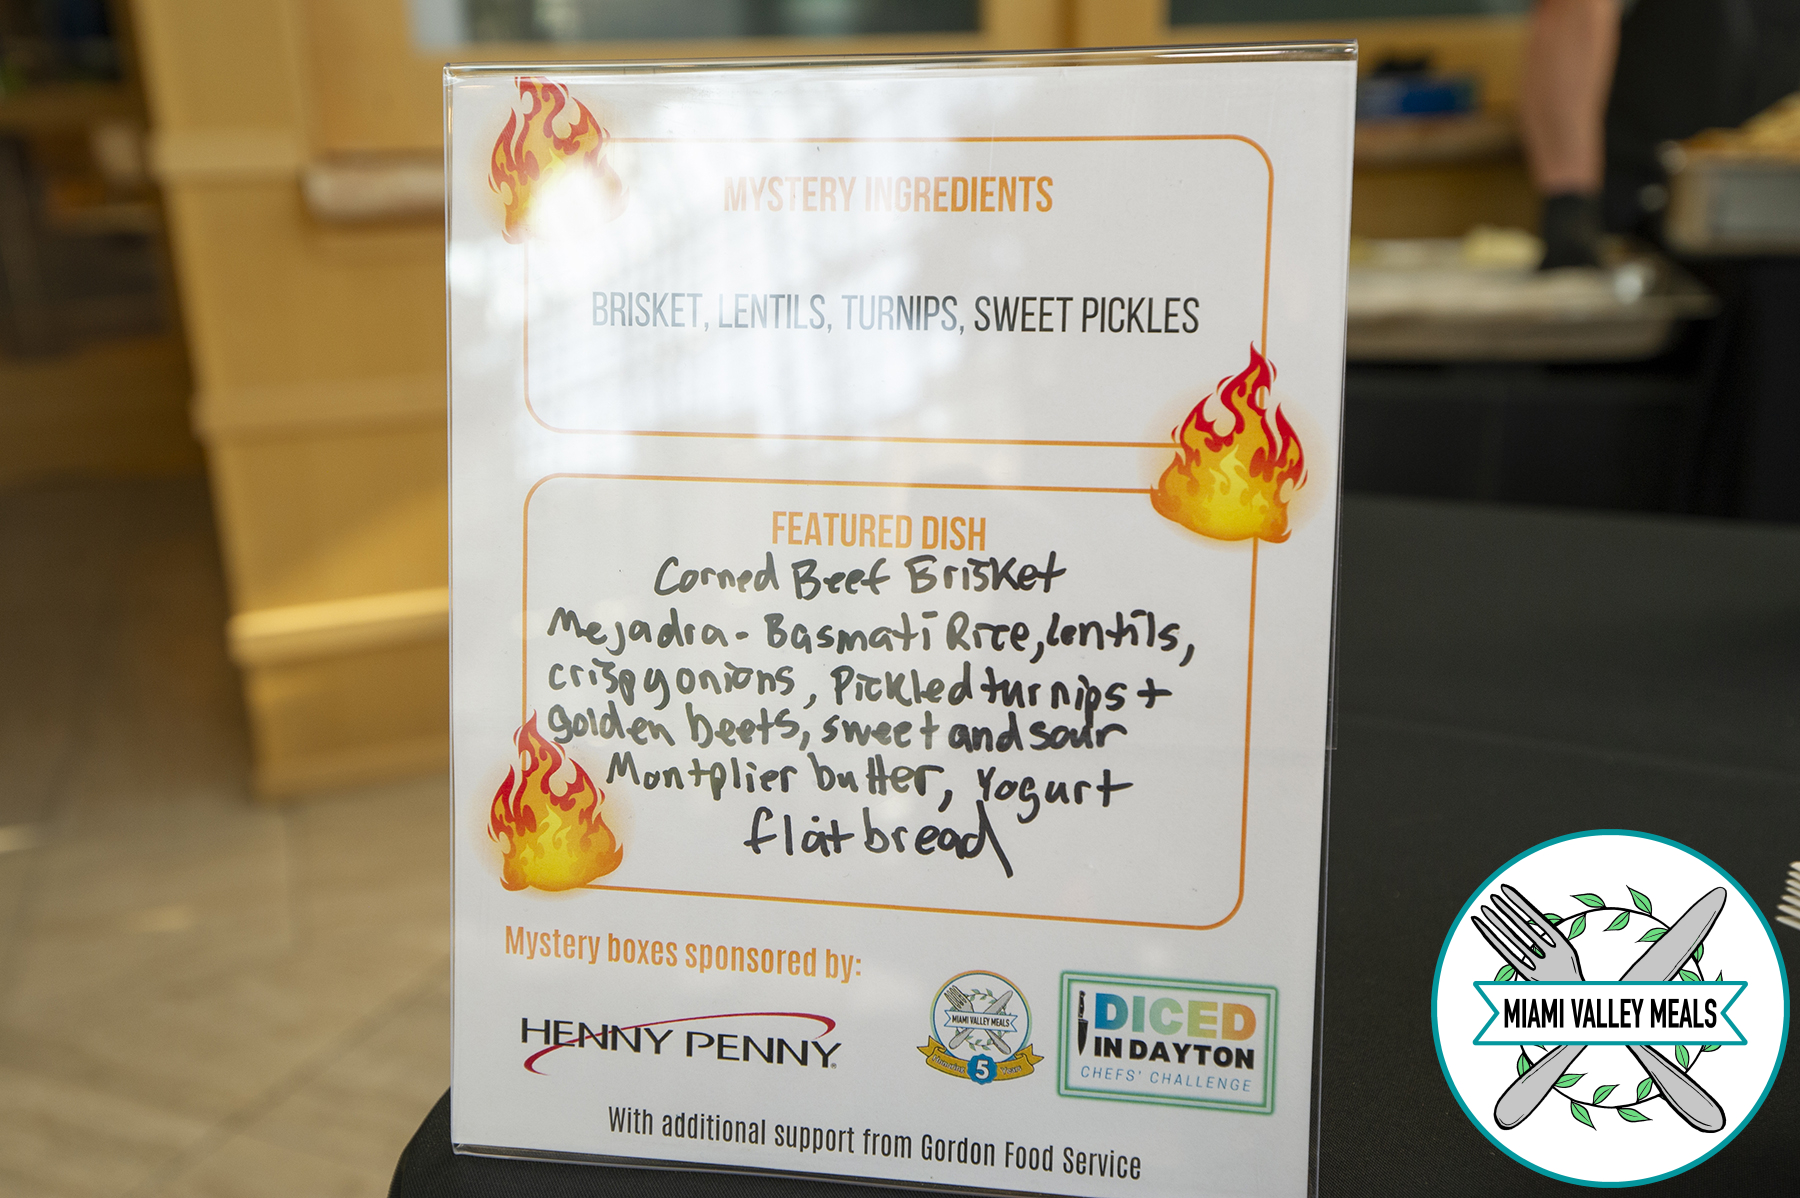 MYSTERY INGREDIENTS
BRISKET, LENTILS, TURNIPS, SWEET PICKLES
FEATURED DISH
Corned Beef Brisket
Mejadra - Basmati Rice, lentils,
crispy onions, Pickled turnips +
golden beets, sweet and sour
Montplier butter, Yogurt
flatbread
Mystery boxes sponsored by:
HENNY PENNY
MIAMI VALLEY MEALS
5 Years
DICED
IN DAYTON
CHEFS' CHALLENGE
With additional support from Gordon Food Service
MIAMI VALLEY MEALS